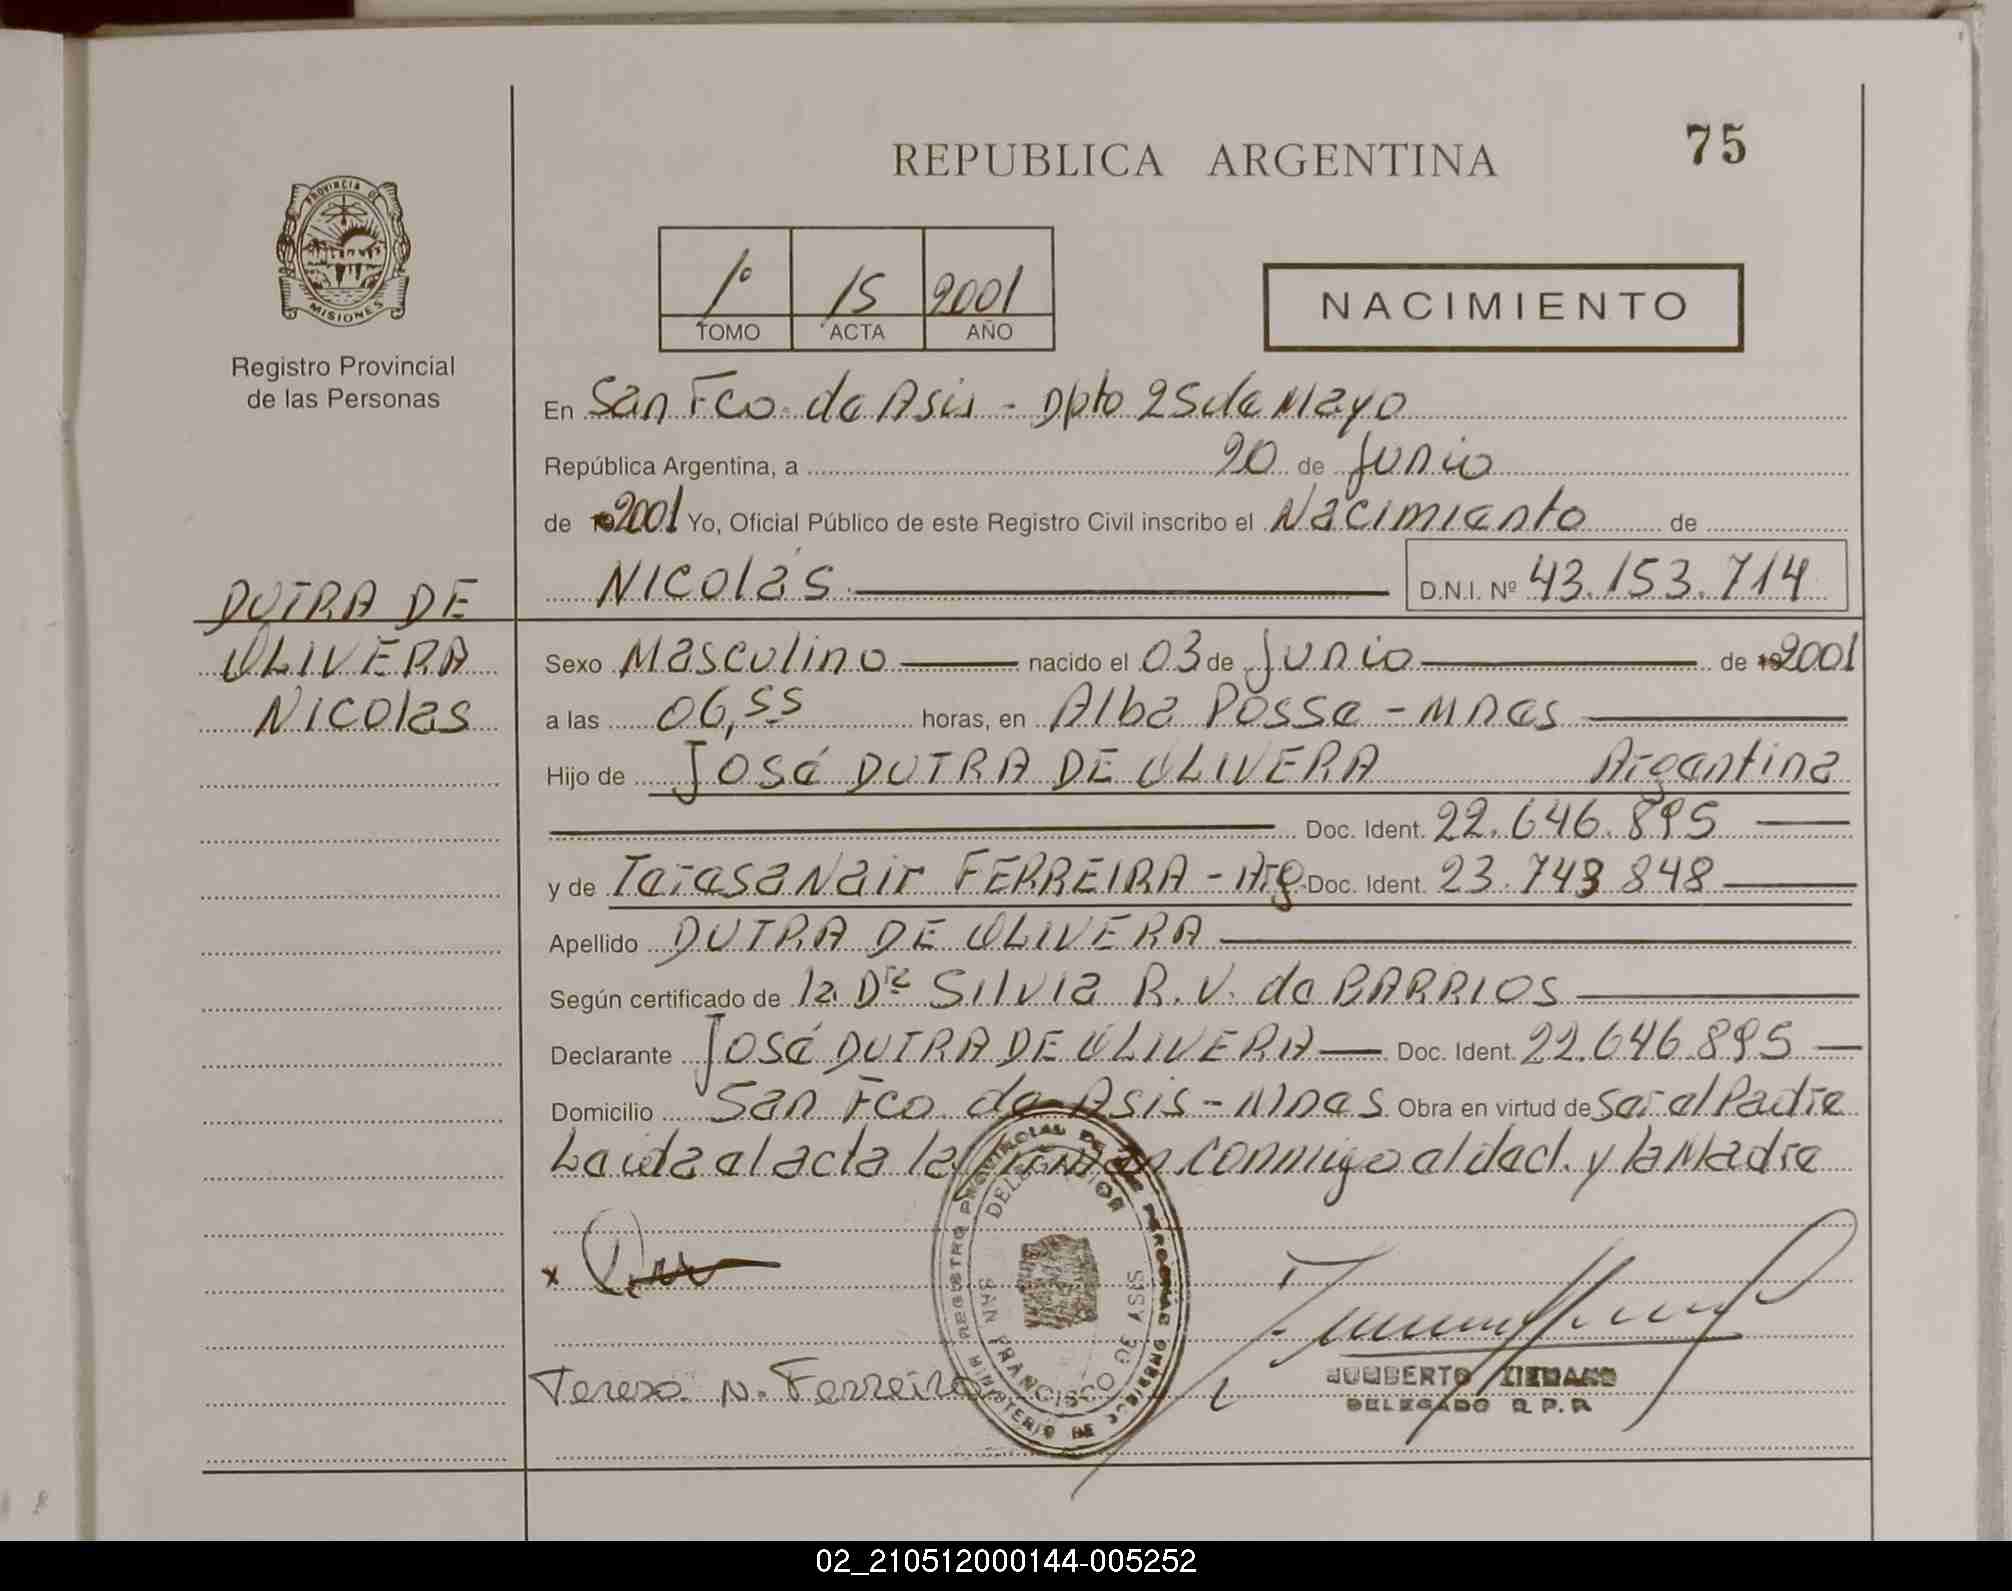 75
REPUBLICA ARGENTINA
PROVINCIA DE
MISIONES
Registro Provincial
de las Personas
1º 15 2001
TOMO ACTA AÑO
NACIMIENTO
En San Fco. de Asis - Dpto 25 de Mayo
República Argentina, a 20 de Junio
de 2001 Yo, Oficial Público de este Registro Civil inscribo el Nacimiento de
Nicolás D.N.I. Nº 43.153.714
DUTRA DE
OLIVERA
Nicolas
Sexo Masculino nacido el 03 de Junio de 2001
a las 06,55 horas, en Alba Posse - Mnes
Hijo de José DUTRA DE OLIVERA Argentina
Doc. Ident. 22.646.895
y de Teresa Nair FERREIRA - Arg. Doc. Ident. 23.743 848
Apellido DUTRA DE OLIVERA
Según certificado de la Dra Silvia R. V. de BARRIOS
Declarante José DUTRA DE OLIVERA Doc. Ident. 22.646.895
Domicilio San Fco. de Asis - Mnes Obra en virtud de Ser el Padre
Leida el acta la firman conmigo el decl. y la Madre
x
Teresa N. Ferreira
MINISTERIO DE REGISTRO PROVINCIAL DE PERSONAS
DELEGACION
SAN FRANCISCO DE ASIS
HUMBERTO
DELEGADO R.P.P.
02_210512000144-005252